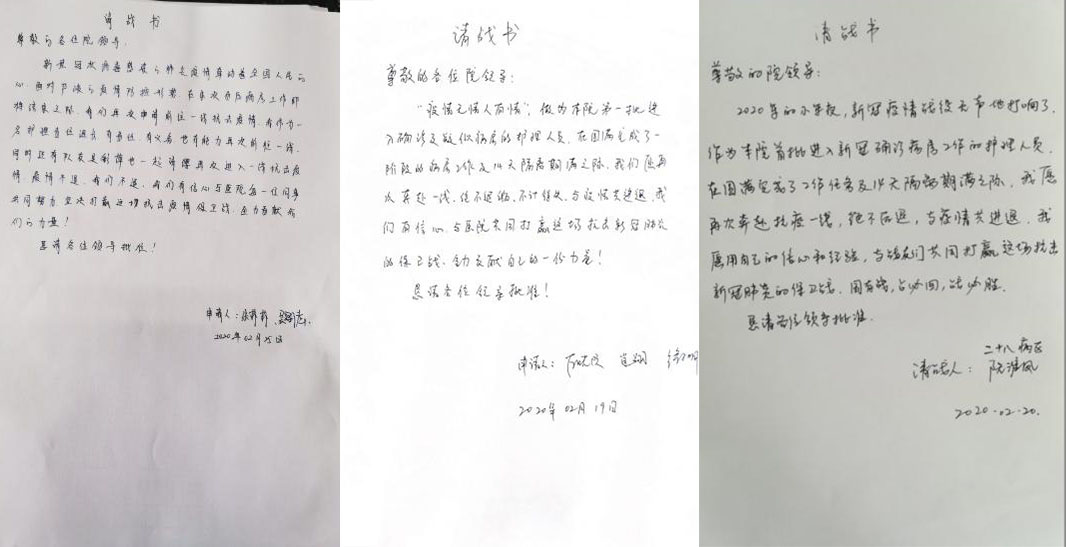 请战书
尊敬的各位院领导:
新型冠状病毒感染的肺炎疫情牵动着全国人民的
心,面对严峻的疫情防控形势,在本次隔离病房工作即
将结束之际,我们再次申请前往一线抗击疫情,我作为一
名护理责任组长,有责任、有义务也有能力再次前往一线,
同时还有队友吴利 也一起请缨再次进入一线抗击疫
情,疫情不退,我们不退,我们有信心与医院每一位同事
共同努力,坚决打赢这场抗击疫情保卫战,全力贡献我
们的力量!
恳请各位领导批准!
申请人:
2020年02月25日
请战书
尊敬的各位院领导:
“疫情无情人有情”,做为本院第一批进
入确诊及疑似病房的护理人员,在圆满完成了一
阶段的病房工作及14天隔离期满之际,我们愿再
次奔赴一线,绝不退缩,不计得失,与疫情共进退,我
们有信心,与医院共同打赢这场抗击新冠肺炎
的保卫战,全力贡献自己的一份力量!
恳请各位领导批准!
申请人:
2020年02月19日
请战书
尊敬的院领导:
2020年的小年夜,新冠疫情防疫大节 打响了,
作为本院首批进入新冠确诊病房工作的护理人员,
在圆满完成了工作任务及14天隔离期满之际,我愿
再次奔赴抗疫一线,绝不后退,与疫情共进退,我
愿用自己的信心和经验,与战友们共同打赢这场抗击
新冠肺炎的保卫战,国有战,召必回,战必胜.
恳请各位领导批准.
二十八病区
请战人:阮淮凤
2020.02.20.